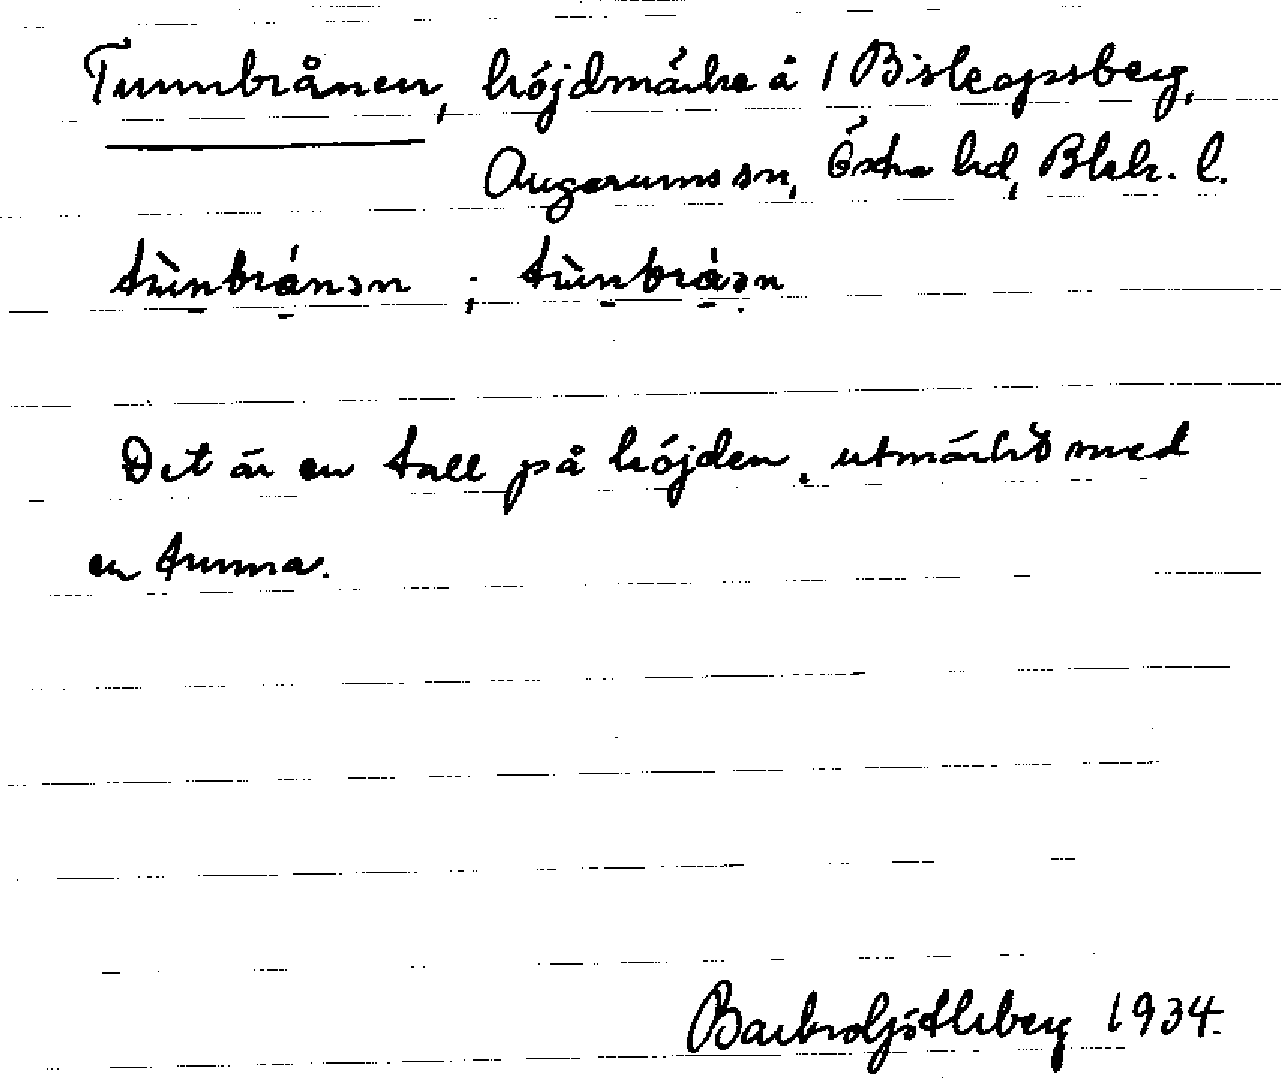 Tunnbrånen, höjdmärke å 1 Biskopsberg,
Augerums sn, Östra hd, Blek. l.
tùnbránən ; tùnbráən
Det är en tall på höjden, utmärkt med
en tunna.
1934.